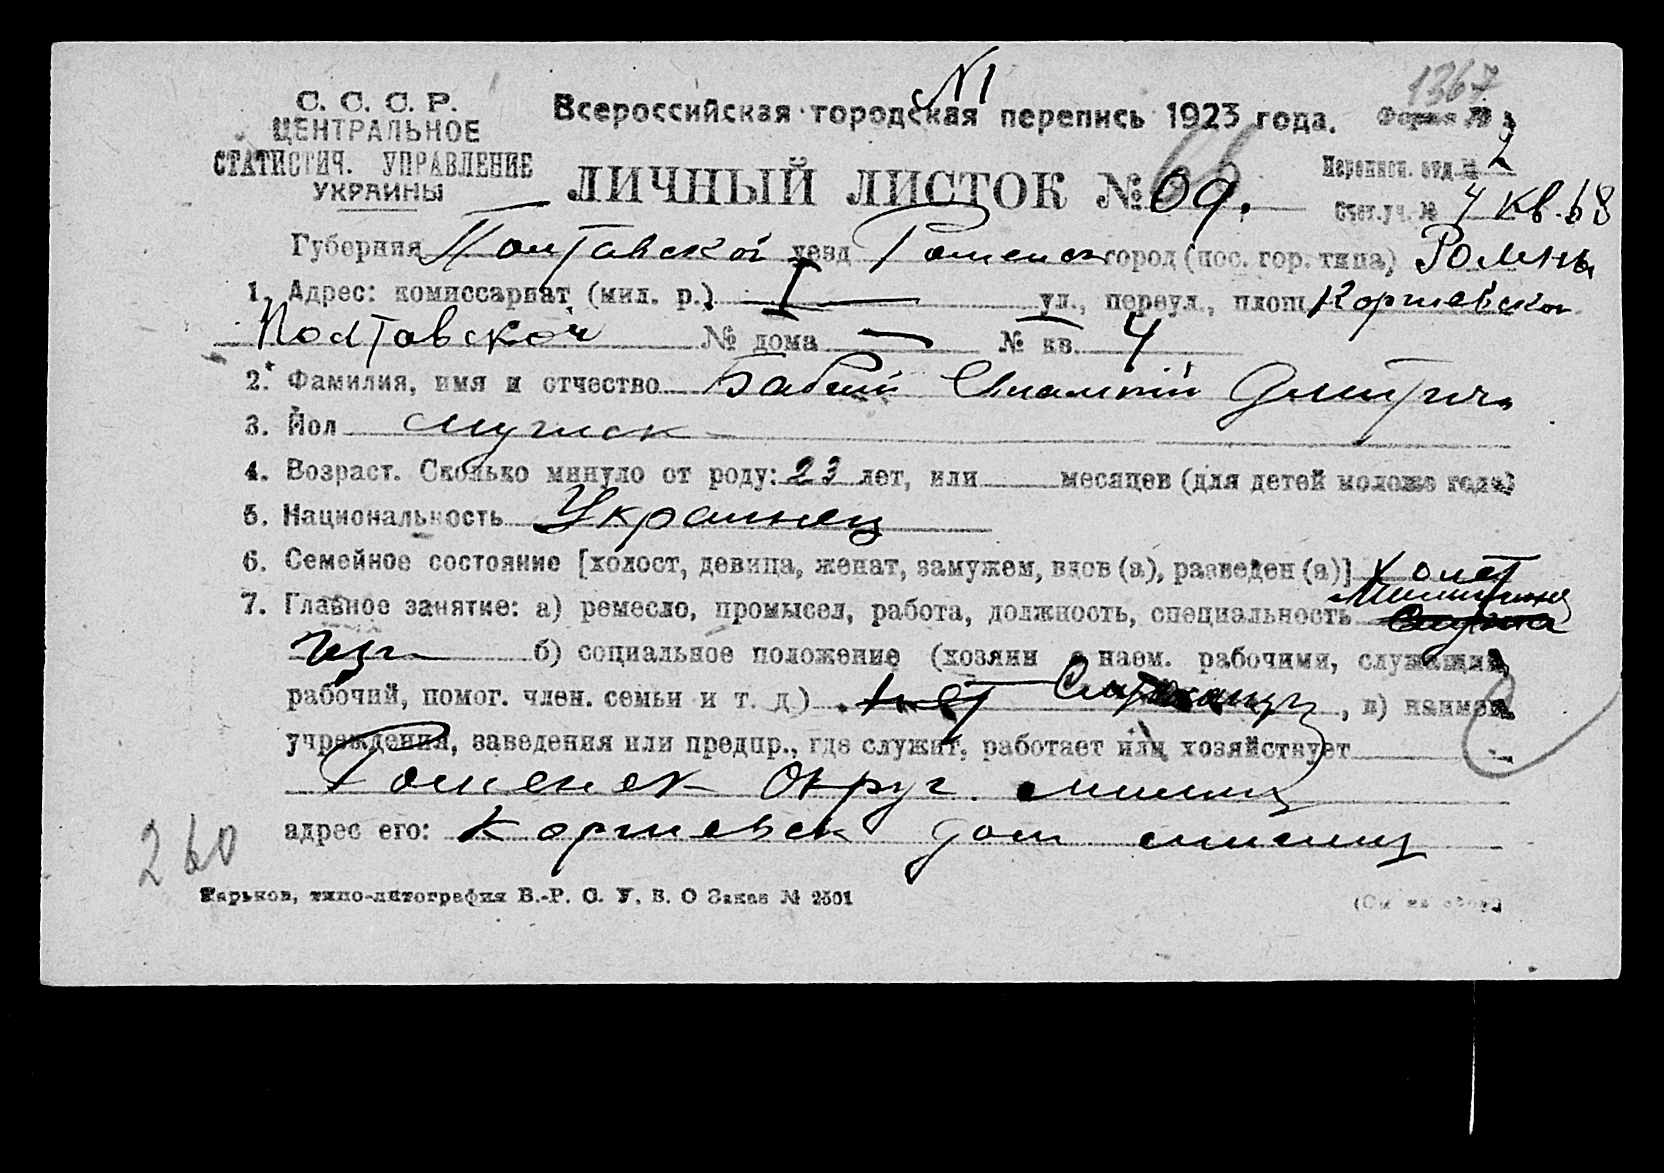 1367
N 1
С. С. С. Р.
ЦЕНТРАЛЬНОЕ
СТАТИСТИЧ. УПРАВЛЕНИЕ
УКРАИНЫ
Всероссийская городская перепись 1923 года.
Форма №
ЛИЧНЫЙ ЛИСТОК № 69.
Переписн. отд. № 2
Счет. уч. № 4 кв. 68
Губерния Полтавской уезд Роменск город (пос. гор. типа) Ромны
1. Адрес: комиссариат (мил. р.) I ул., переул., площ. Коржевской
Полтавской № дома — № кв. 4
2. Фамилия, имя и отчество Бабий Дмитрич
3. Пол мужск
4. Возраст. Сколько минуло от роду: 23 лет, или месяцев (для детей моложе года)
5. Национальность Украинец
6. Семейное состояние [холост, девица, женат, замужем, вдов (а), разведен (а)] холост
7. Главное занятие: а) ремесло, промысел, работа, должность, специальность
б) социальное положение (хозяин с наем. рабочими, служащий,
рабочий, помог. член. семьи и т. д.) нет Служащий, в) наимен.
учреждения, заведения или предпр., где служит, работает или хозяйствует
Роменск Округ. милиц
адрес его: Коржевск дом милиц
260
Харьков, типо-литография В.-Р. С. У. В. О Заказ № 2501
(См на обор.)